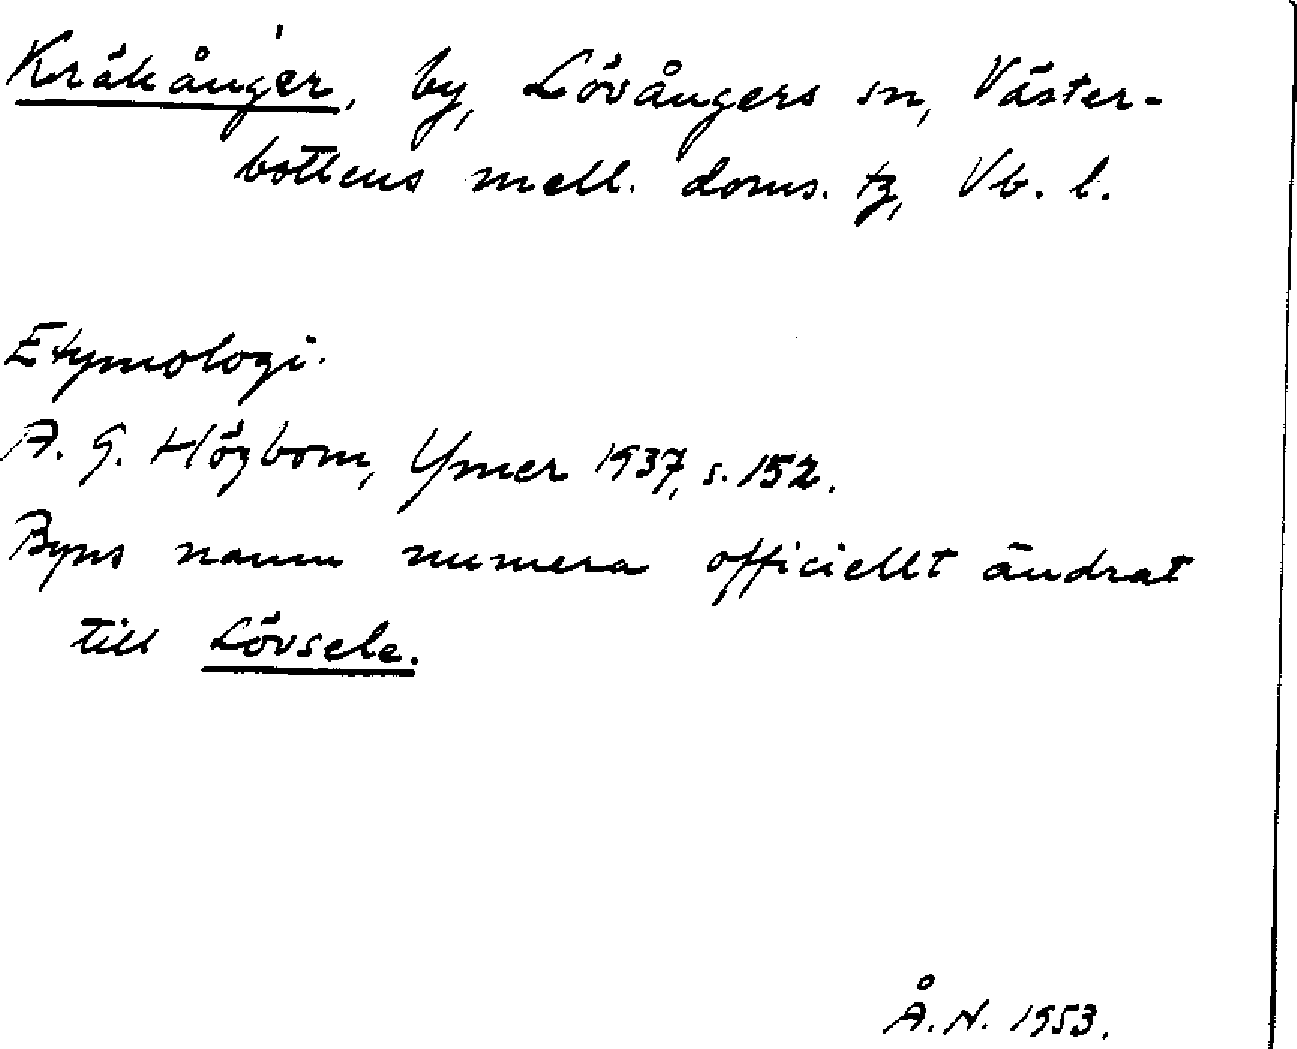 Kräkånger, by, Lövångers sn, Väster-
bottens mell. doms. tg, Vb. l.
Etymologi.
A. G. Högbom, Ymer 1937, s. 152.
Byns namn numera officiellt ändrat
till Lövsele.
Å. N. 1953.